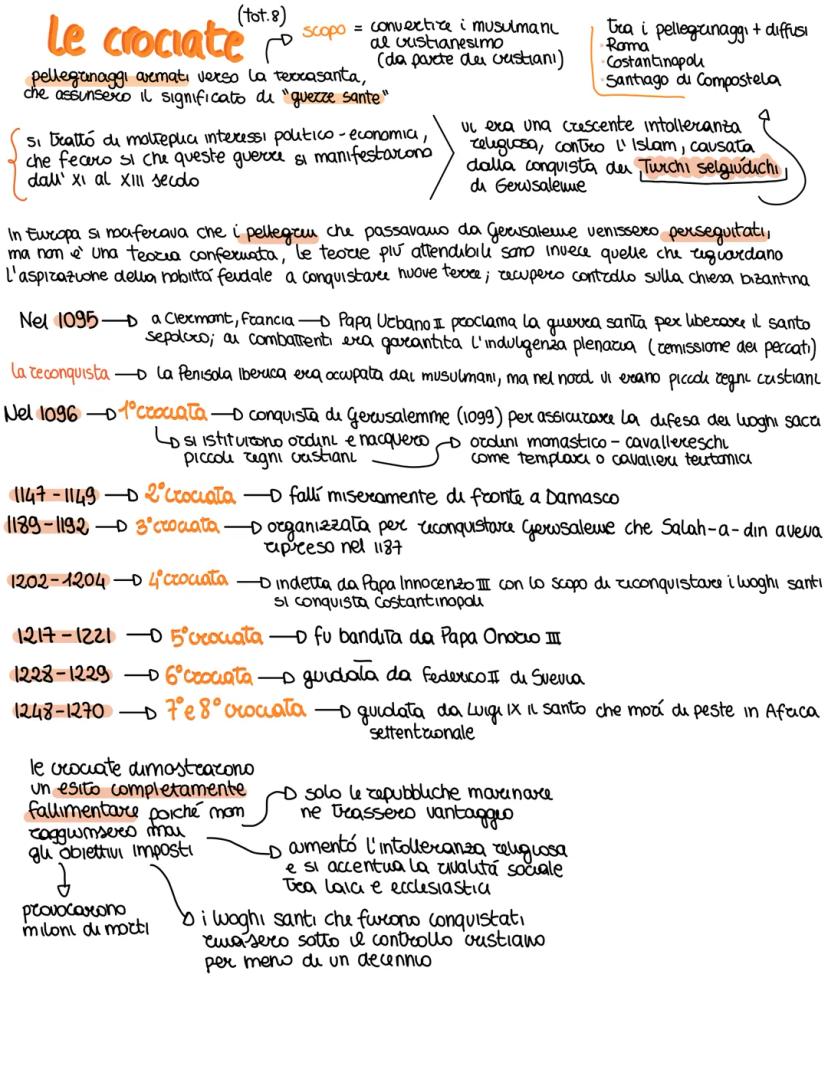 le crociate
(tot.8)
scopo = convertire i musulmani
al cristianesimo
(da parte dei cristiani)
tra i pellegrinaggi + diffusi
· Roma
· Costantinopoli
· Santiago di Compostela
pellegrinaggi armati verso la terrasanta,
che assunsero il significato di "guerre sante"
si trattó di molteplici interessi politico-economici,
che fecero sì che queste guerre si manifestarono
dall' XI al XIII secolo
vi era una crescente intolleranza
religiosa, contro l'Islam, causata
dalla conquista dei Turchi selgiúdichi
di Gerusalemme
In Europa si vociferava che i pellegrini che passavano da Gerusalemme venissero perseguitati,
ma non e' una teoria confermata, le teorie piú attendibili sono invece quelle che riguardano
l'aspirazione della nobiltá feudale a conquistare nuove terre; recupero controllo sulla chiesa bizantina
Nel 1095 → a Clermont, Francia → Papa Urbano II proclama la guerra santa per liberare il santo
sepolcro; ai combattenti era garantita l'indulgenza plenaria (remissione dei peccati)
la reconquista → la Penisola Iberica era occupata dai musulmani, ma nel nord vi erano piccoli regni cristiani
Nel 1096 → 1° crociata → conquista di Gerusalemme (1099) per assicurare la difesa dei luoghi sacri
si istituirono ordini e nacquero
piccoli regni cristiani
ordini monastico - cavallereschi
come templari o cavalieri teutonici
1147 - 1149 → 2° crociata → fallí miseramente di fronte a Damasco
1189 - 1192 → 3° crociata → organizzata per riconquistare Gerusalemme che Salah-a-din aveva
ripreso nel 1187
1202 - 1204 → 4° crociata → indetta da Papa Innocenzo III con lo scopo di riconquistare i luoghi santi
si conquista Costantinopoli
1217 - 1221 → 5° crociata → fu bandita da Papa Onorio III
1228 - 1229 → 6° crociata → guidata da Federico II di Svevia
1248 - 1270 → 7° e 8° crociata → guidata da Luigi IX il santo che morí di peste in Africa
settentrionale
le crociate dimostrarono
un esito completamente
fallimentare poiché non
raggiunsero mai
gli obiettivi imposti
solo le repubbliche marinare
ne trassero vantaggio
aumentó l'intolleranza religiosa
e si accentua la rivalitá sociale
tra laici e ecclesiastici
provocarono
milioni di morti
i luoghi santi che furono conquistati
rimasero sotto il controllo cristiano
per meno di un decennio